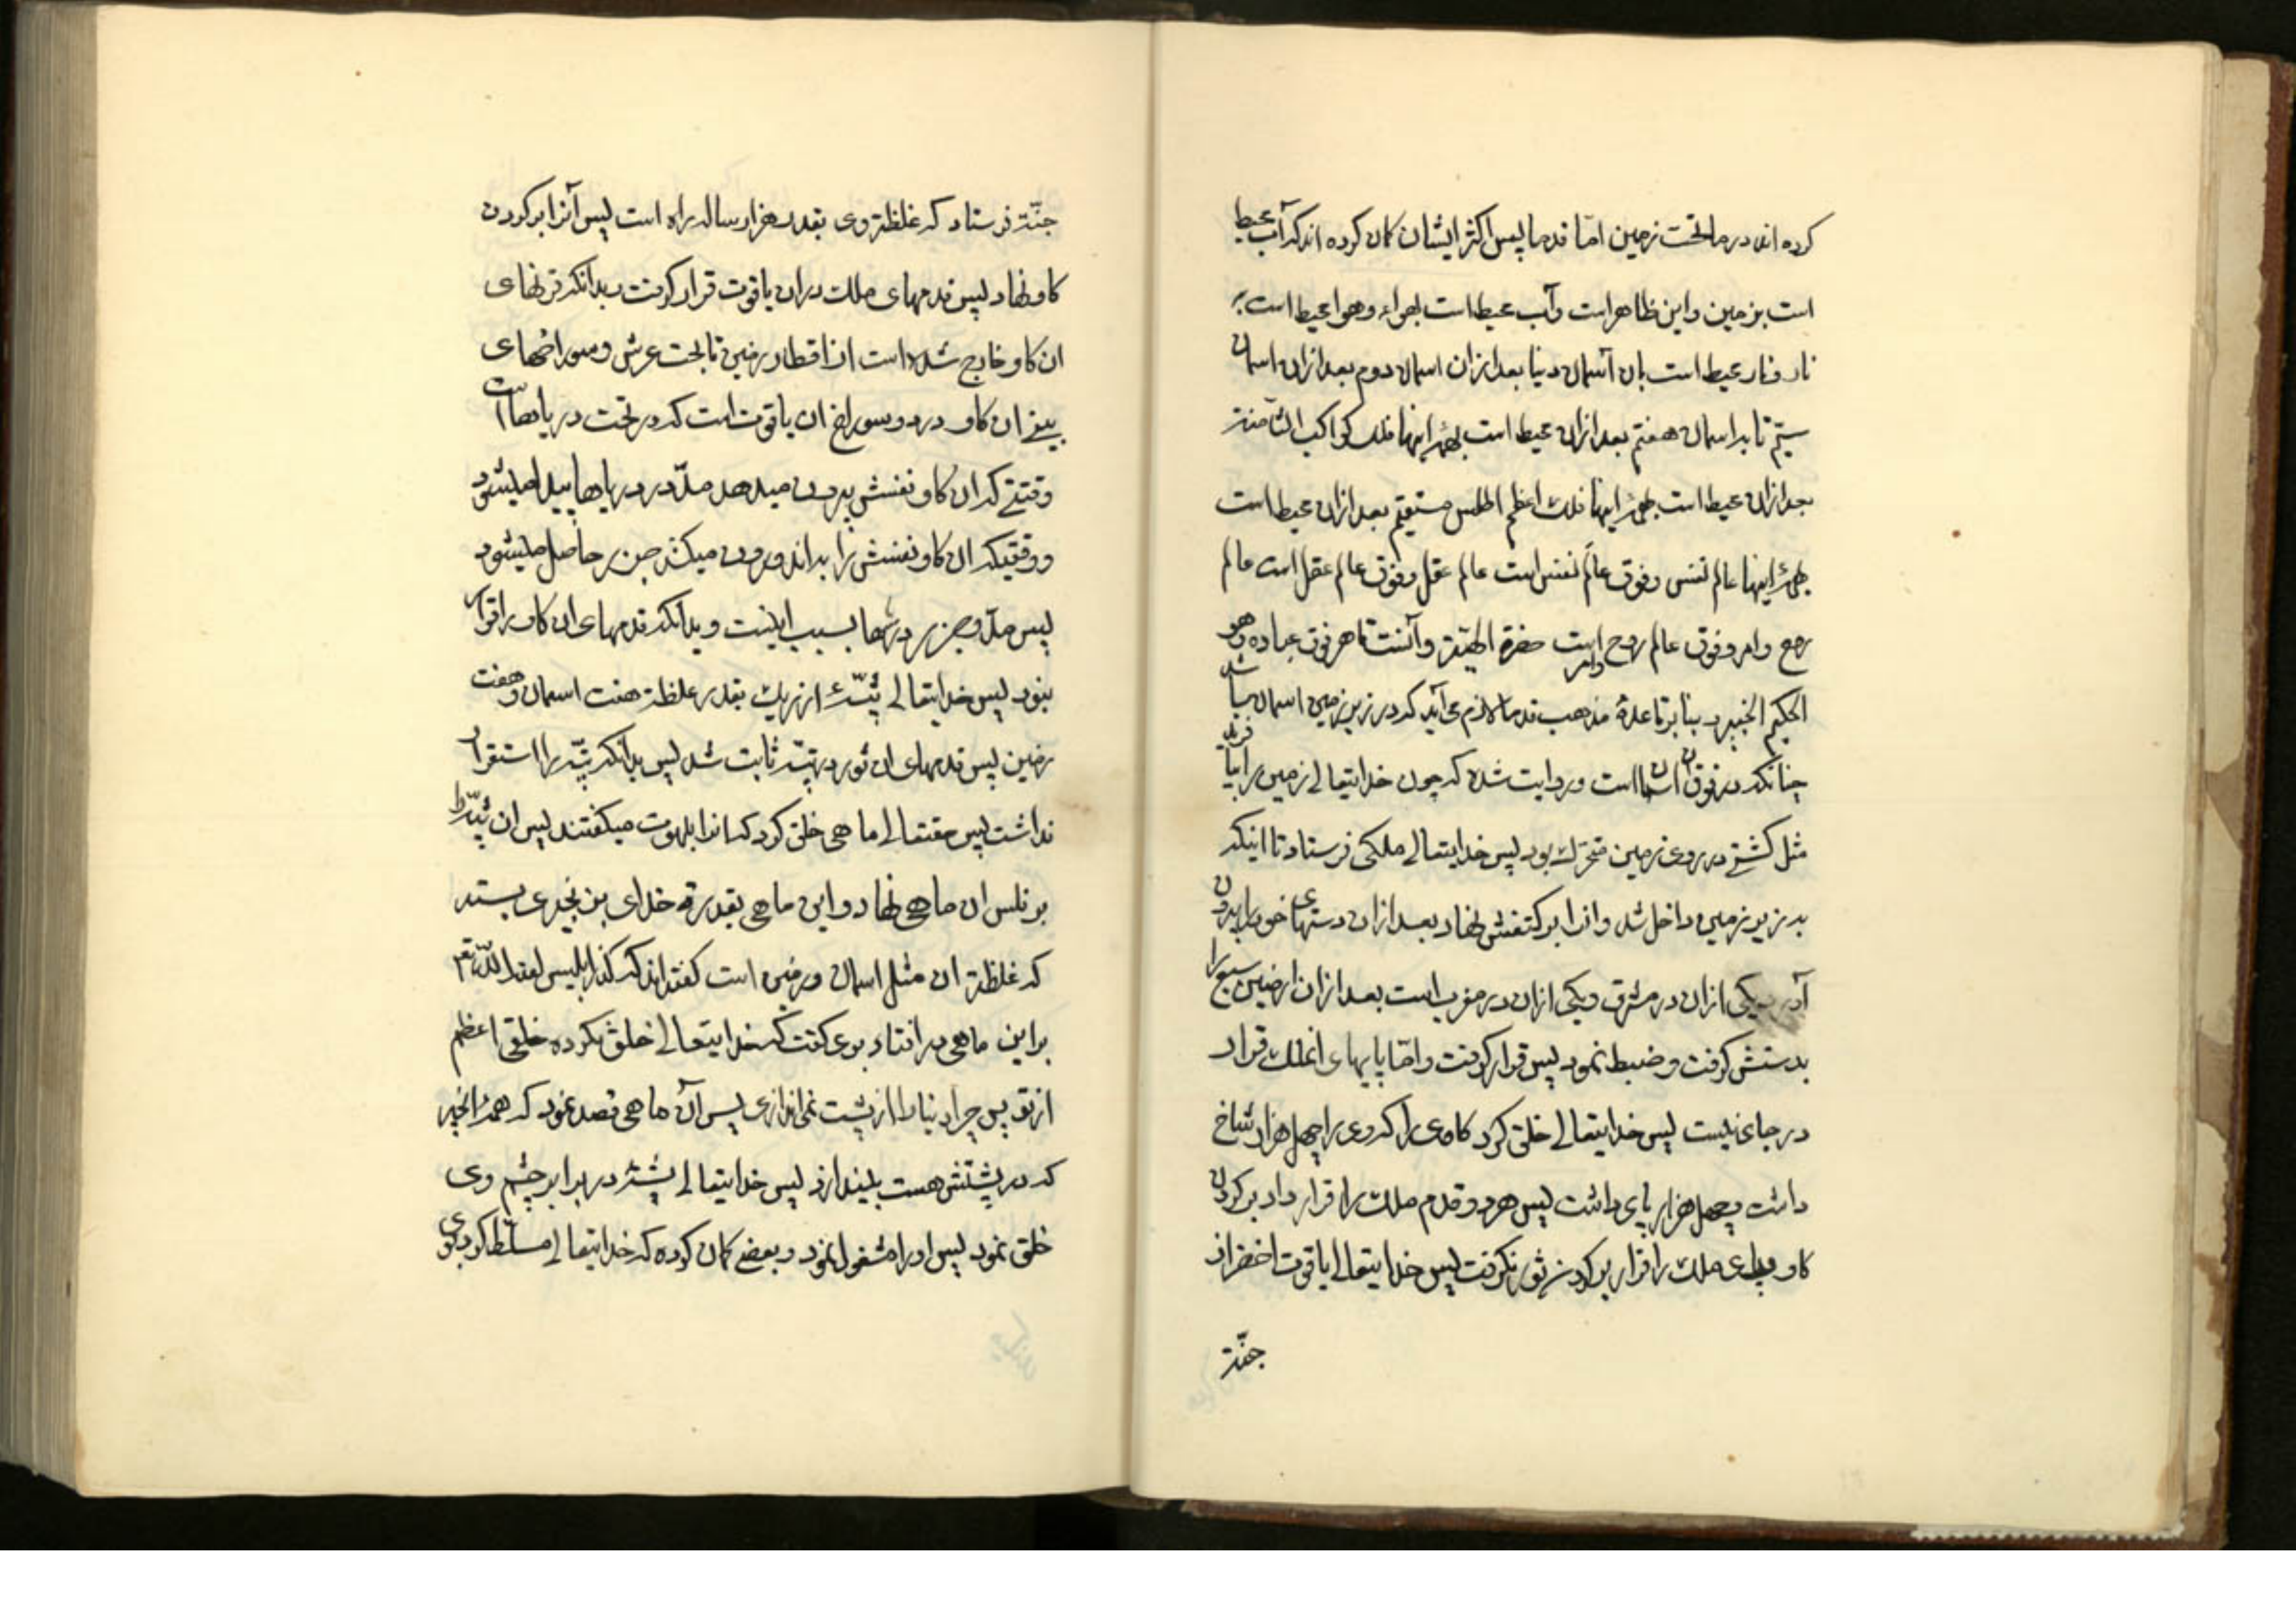 کرده اند در ماتحت زمین امّا قدما پس اکثر ایشان کمان کرده اند که آب محیط
است بزمین واین ظاهر است وآب محیط است بهواء وهوا محیط است بر
نار ونار محیط است بان آسمان دنیا بعد ازان اسمان دوم بعد ازان اسمان
سیّم تا به اسمان هفتم بعد ازان محیط است بهمهٔ اینها فلک کواکب الثامنة
بعد ازان محیط است بهمهٔ اینها فلک اعظم اطلس مستقیم بعد ازان محیط است
بهمهٔ اینها عالم نفس وفوق عالم نفس است عالم عقل وفوق عالم عقل است عالم
روح وامر وفوق عالم روح وامر است حضرة الهیّة وآنست قاهر فوق عباده وهو
الحکیم الخبیر و بنابر قاعدهٔ مذهب قدما لازم می آید که در زیر زمین اسمان باشد
چنانکه در فوق ان اسمان است وروایت شده که چون خدایتعالی زمین را بیافرید
مثل کشتی در روی زمین متحرک بود پس خدایتعالی ملکی فرستاد تا اینکه
به زیر زمین داخل شد وانرا بر کتفش نهاد بعد ازان دستهای خود را بیرون
آورد یکی ازان در مشرق ویکی ازان در مغرب است بعد ازان ارضین سبع را
بدستش کرفت وضبط نمود پس قرار کرفت وامّا پایهای انملک قرار
در جای نیست پس خدایتعالی خلق کرد کاوی را که وی را چهل هزار شاخ
داشت وچهل هزار پای داشت پس هر دو قدم ملک را قرار داد بر کردن
کاو وپای ملک را قرار بر کردن ثور نکرفت پس خدایتعالی یاقوت اخضر از
جنّة
جنّة فرستاد که غلظة وی بقدر هزار ساله راه است پس آنرا بر کردن
کاو نهاد پس قدمهای ملک دران یاقوت قرار کرفت بدانکه قرنهای
ان کاو خارج شده است از اقطار زمین تا بحت عرش وسوراخهای
بینی ان کاو در دو سوراخ ان یاقوت است که در تحت دریاها است
وقتیکه ان کاو نفسش بیرون میدهد مدّ در دریاها پیدا میشود
ووقتیکه ان کاو نفسش را به اندرون میکشد جزر حاصل میشود
پس مدّ وجزر دریاها بسبب اینست وبدانکه قدمهای ان کاو را قرار
نبود پس خدایتعالی تپّهٔ از ریک بقدر غلظة هفت اسمان وهفت
زمین پس قدمهای ان ثور در تپّه ثابت شد پس بدانکه تپّه را استقرار
نداشت پس حقتعالی ماهی خلق کرد که انرا بلهوت میکفتند پس ان تپّه را
بر فلس ان ماهی نهاد واین ماهی بقدرة خدای بزنجیری بسته
که غلظة ان مثل اسمان وزمین است کفته اند که کذار ابلیس لعنه اللّه تعم
براین ماهی در افتاد بوی کفت که خدایتعالی خلق نکرده خلقی اعظم
از تو پس چرا دنیا را از پشت نمی اندازی پس آن ماهی قصد نمود که همهٔ انچه
که در پشتش هست بیندازد پس خدایتعالی پشّهٔ در برابر چشم وی
خلق نمود پس او را مشغول نمود وبعضی کمان کرده که خدایتعالی مسلّط کرد بروی